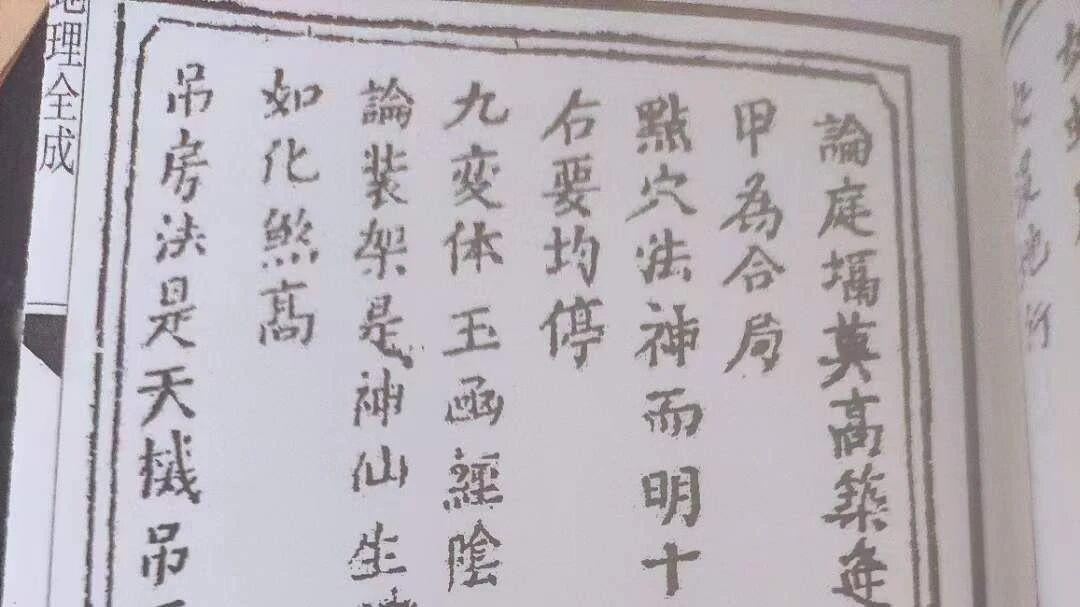 論庭塥莫高築
甲為合局
點穴法神而明十
右要均停
九变体玉函經陰
論装架是神仙生
如化煞高
吊房法是天機吊
地理全成